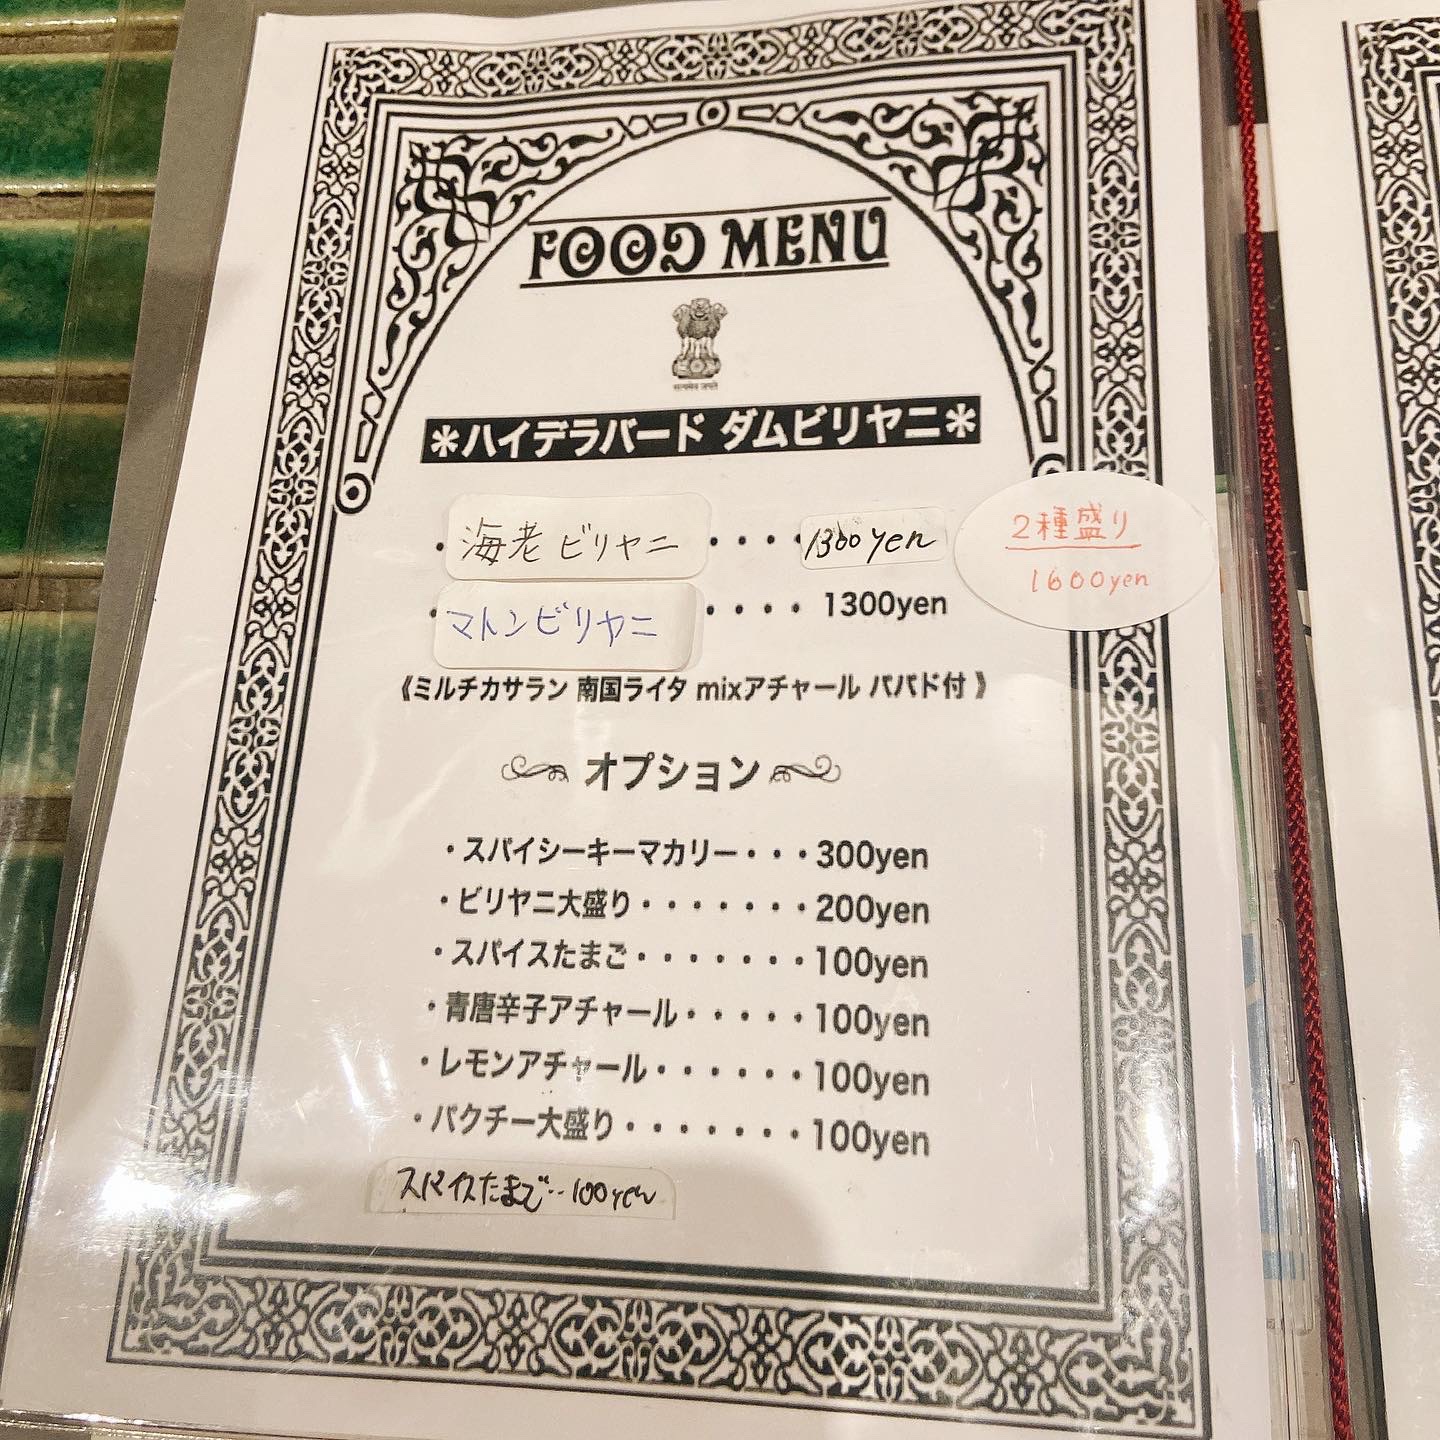 FOOD MENU
सत्यमेव जयते
＊ハイデラバード ダムビリヤニ＊
・海老ビリヤニ・・・・1300yen
2種盛り
1600yen
・マトンビリヤニ・・・・1300yen
《ミルチカサラン 南国ライタ mixアチャール パパド付》
オプション
・スパイシーキーマカリー・・・300yen
・ビリヤニ大盛り・・・・・・・200yen
・スパイスたまご・・・・・・・100yen
・青唐辛子アチャール・・・・・100yen
・レモンアチャール・・・・・・100yen
・パクチー大盛り・・・・・・・100yen
スパイスたまご‥100yen